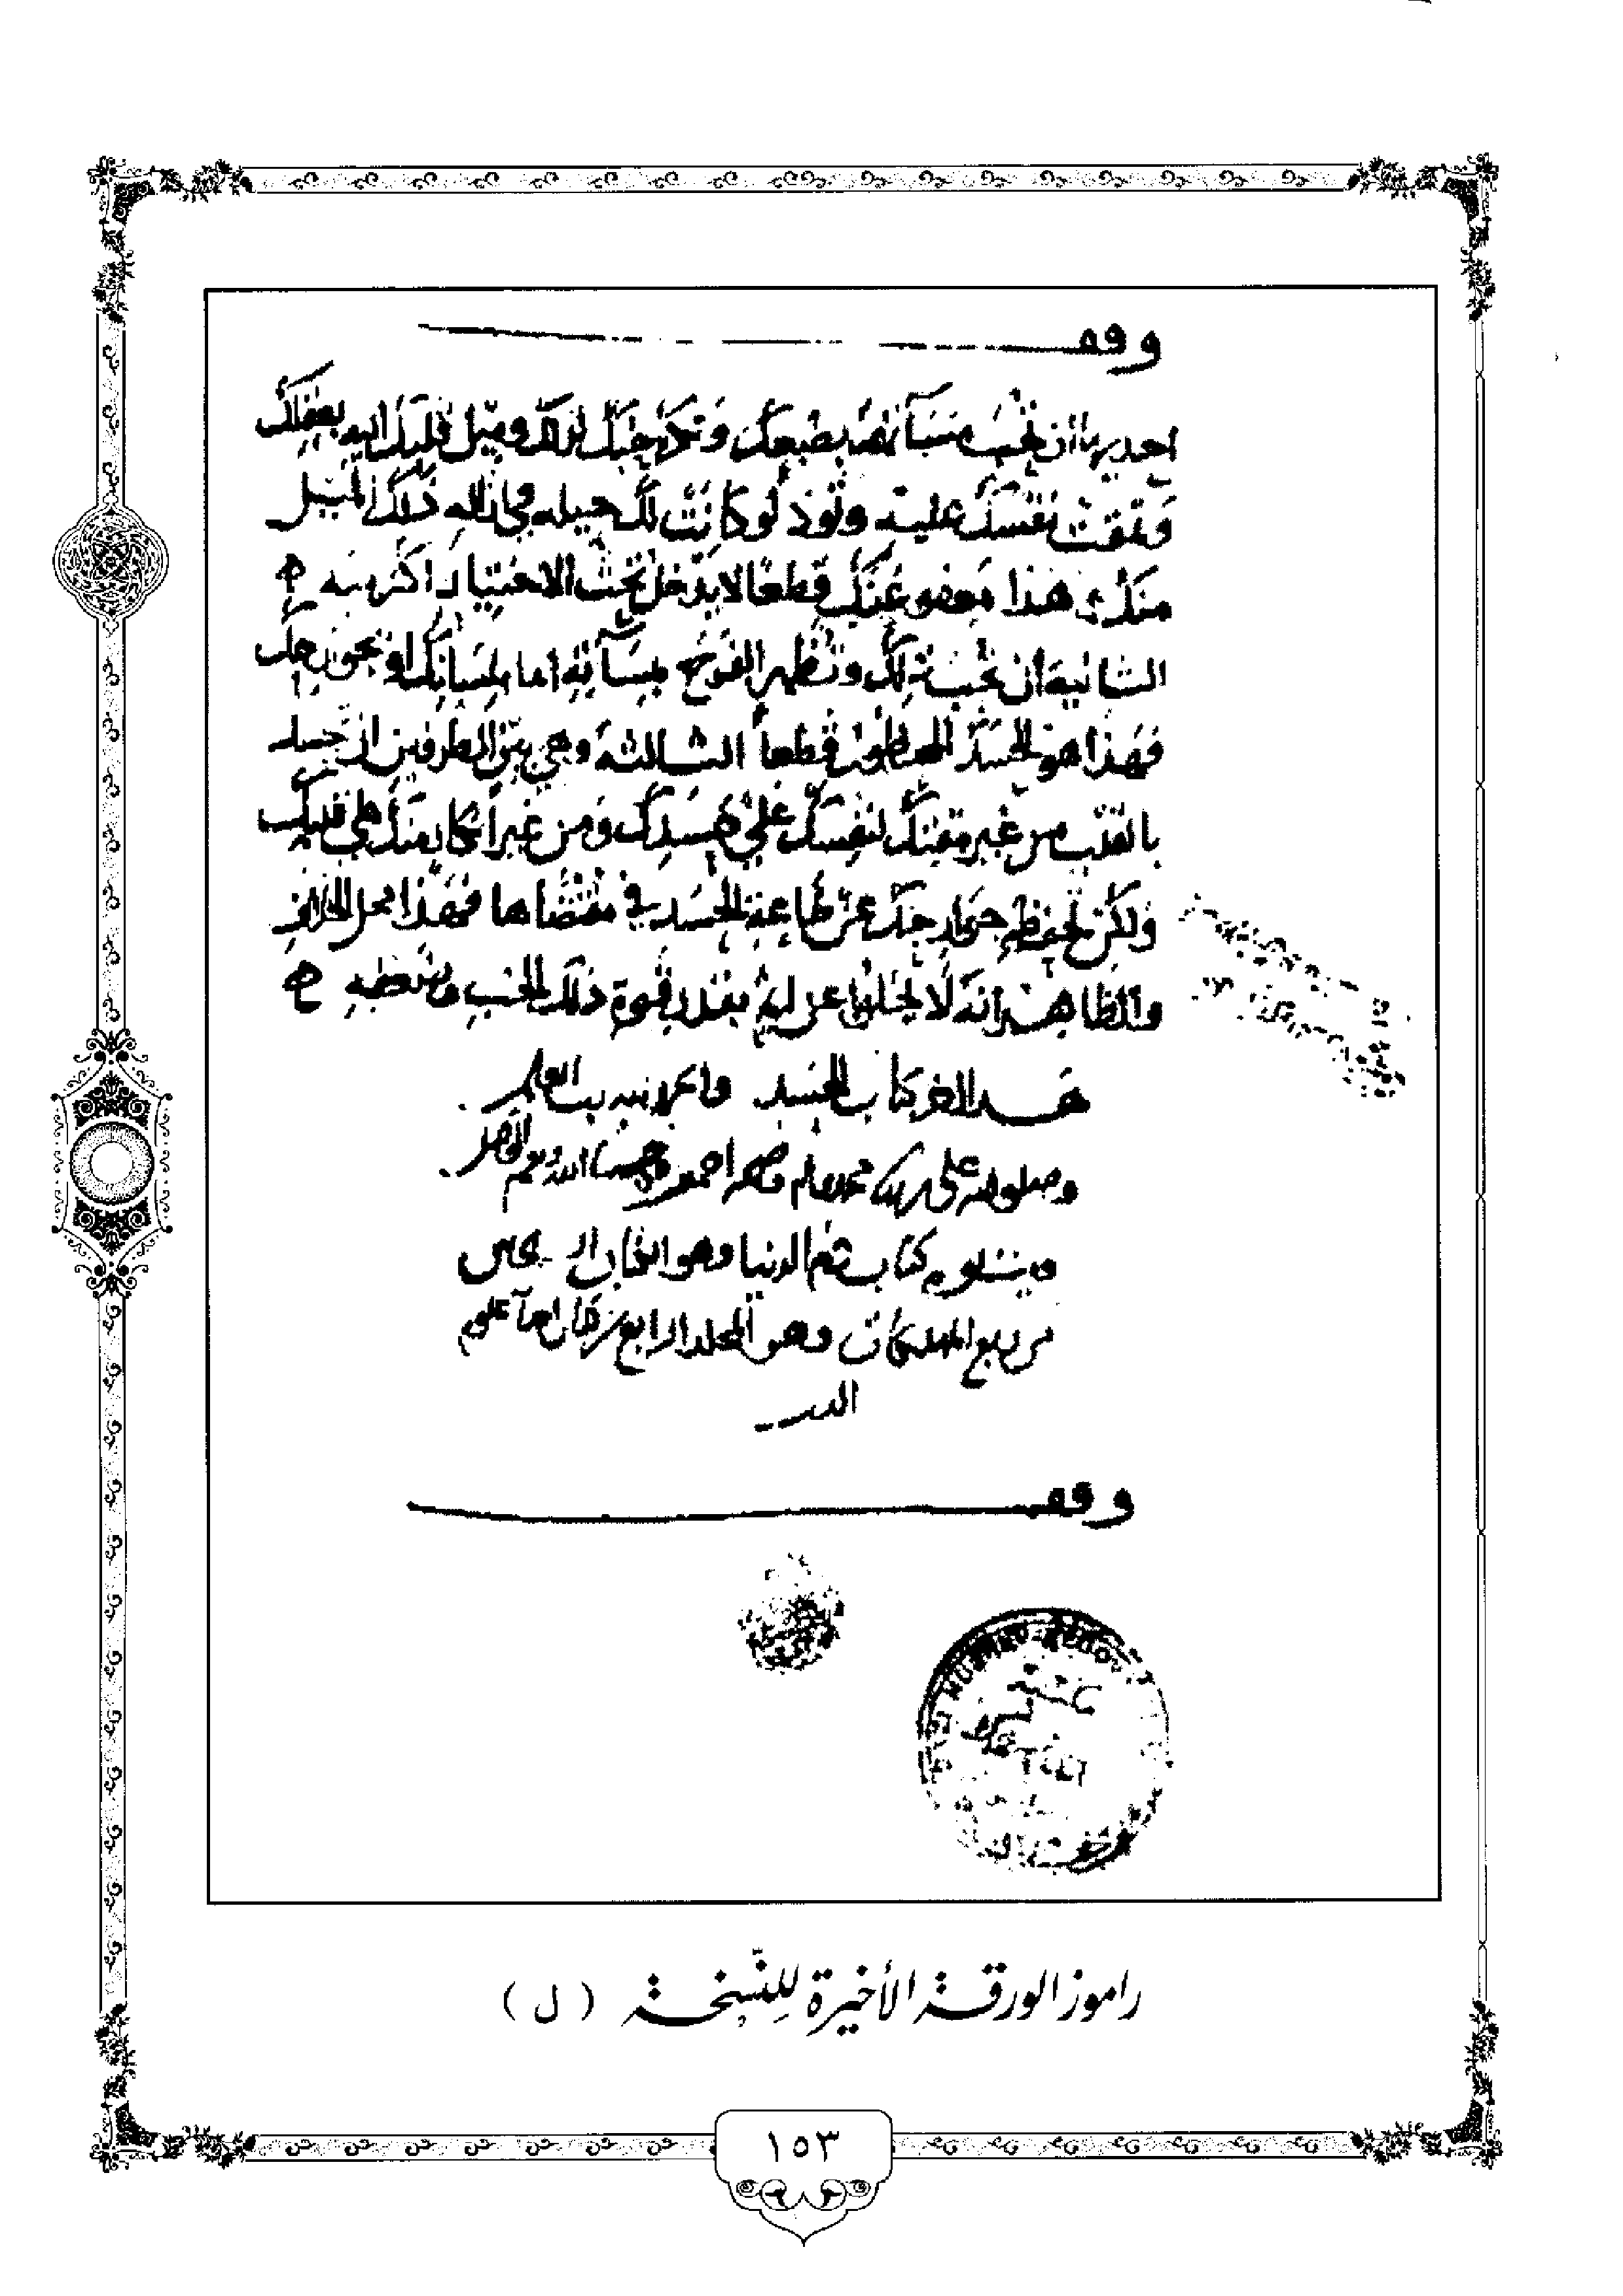 وقف
احديها ان تحب مساءتهم بطبعك وتكره حبك لذلك وميل قلبك اليه بعقلك
وتمقت نفسك عليه وتود لو كانت لك حيلة في ازالة ذلك الميل
منك وهذا معفو عنك قطعا لا يدخل تحت الاختيار اكثر منه
الثانية ان تحب ذلك وتظهر الفرح بمساءته اما بلسانك او بجوارحك
فهذا هو الحسد المحظور قطعا الثالثة وهي بين الطرفين ان تحسد
بالقلب من غير مقتك لنفسك على حسدك ومن غير انكار منك على قلبك
ولكن تحفظ جوارحك عن طاعة الحسد في مقتضاها فهذا محل الخلاف
والظاهر انه لا يخلوا عن اثم بقدر قوة ذلك الحب وضعفه
هذا اخر كتاب الحسد والحمد لله رب العالمين
وصلواته على محمد واله وصحبه اجمعين وحسبنا الله ونعم الوكيل
ويتلوه كتاب ذم الدنيا وهو الكتاب السادس
من ربع المهلكات وهو المجلد الرابع من كتاب احيا علوم
الدين
وقف
راموز الورقة الأخيرة للنسخة ( ل )
١٥٣